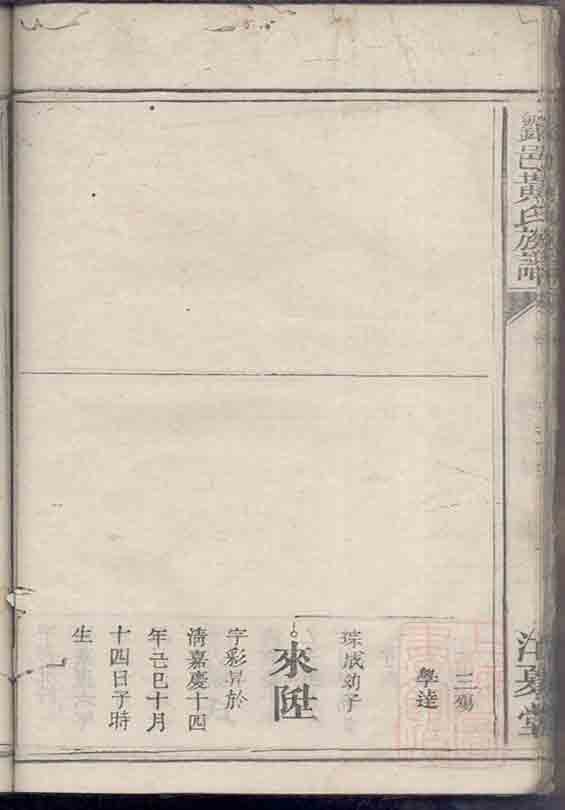 黃氏族譜
江夏堂
三殤
學達
琮成幼子
來陞
字彩昇於
清嘉慶十四
年己巳十月
十四日子時
生